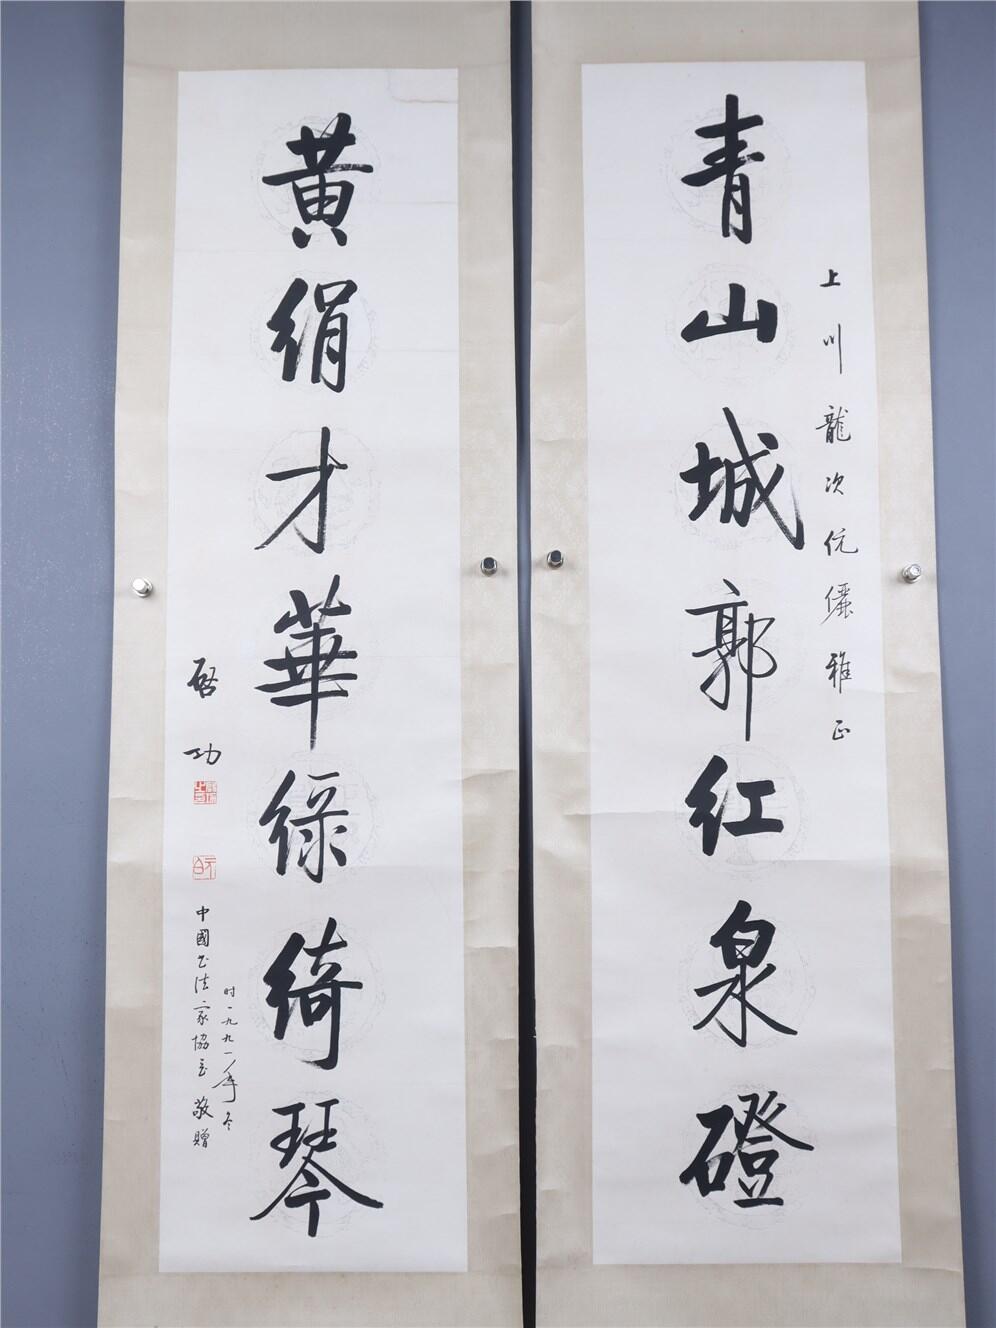 上川龍次伉儷雅正
青山城郭紅泉磴
黃絹才華綠綺琴
啓功
中國书法家協会敬贈
时一九九一年冬